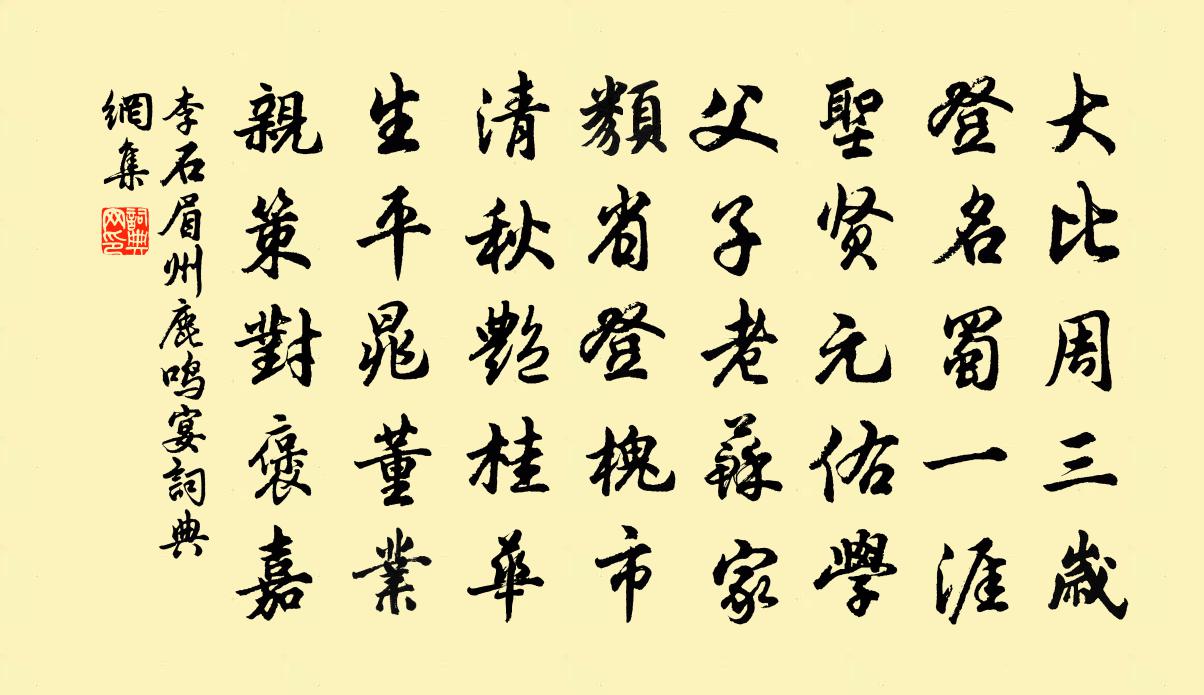 大比周三歲
登名蜀一涯
聖贤元佑學
父子老蘇家
類省登槐市
清秋艷桂華
生平晁董業
親策對褒嘉
李石眉州鹿鳴宴詞典
網集
詞典網印